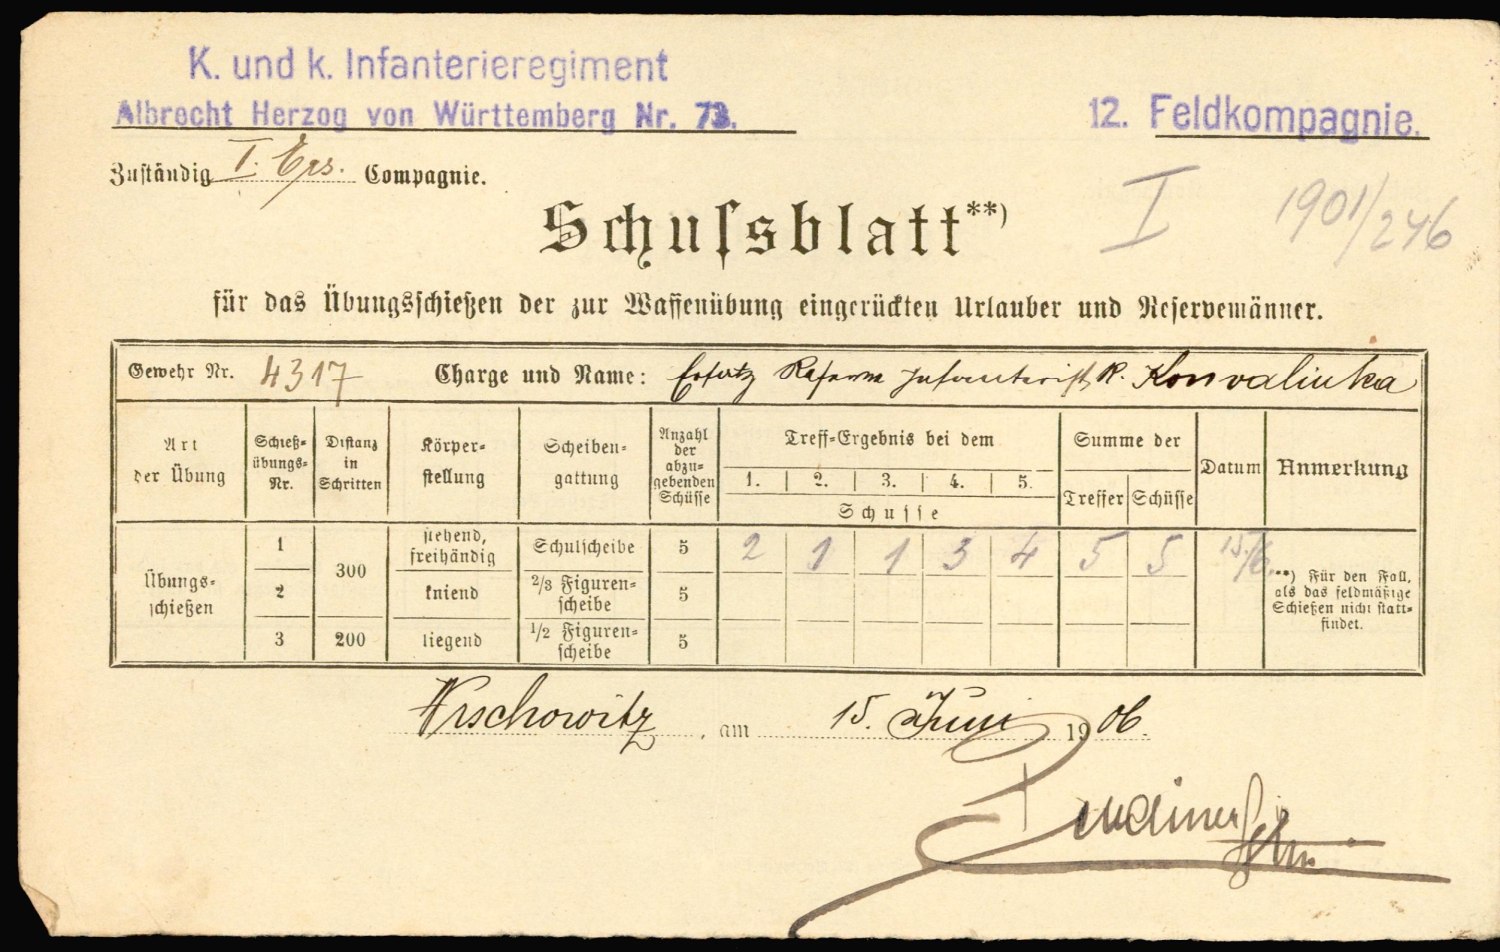 K. und k. Infanterieregiment
Albrecht Herzog von Württemberg Nr. 73.
12. Feldkompagnie.
Zuständig I. Ers. Compagnie.
I 1901/246
Schuſsblatt**)
für das Übungsſchießen der zur Waffenübung eingerückten Urlauber und Reſervemänner.
Gewehr Nr. 4317 Charge und Name: Ersatz Reserve Infanterist R. Konvalinka
Art der Übung
Schieß-übungs-Nr.
Diſtanz in Schritten
Körper-ſtellung
Scheiben-gattung
Anzahl der abzu-gebenden Schüſſe
Treff-Ergebnis bei dem
1. 2. 3. 4. 5.
Schuſſe
Summe der
Treffer Schüſſe
Datum
Anmerkung
Übungs-ſchießen
1 300 ſtehend, freihändig Schulſcheibe 5 2 1 1 3 4 5 5 15/6.
2 kniend 2/3 Figuren-ſcheibe 5
3 200 liegend 1/2 Figuren-ſcheibe 5
**) Für den Fall,
als das feldmäßige
Schießen nicht ſtatt-
findet.
Wrschowitz, am 15. Juni 1906.